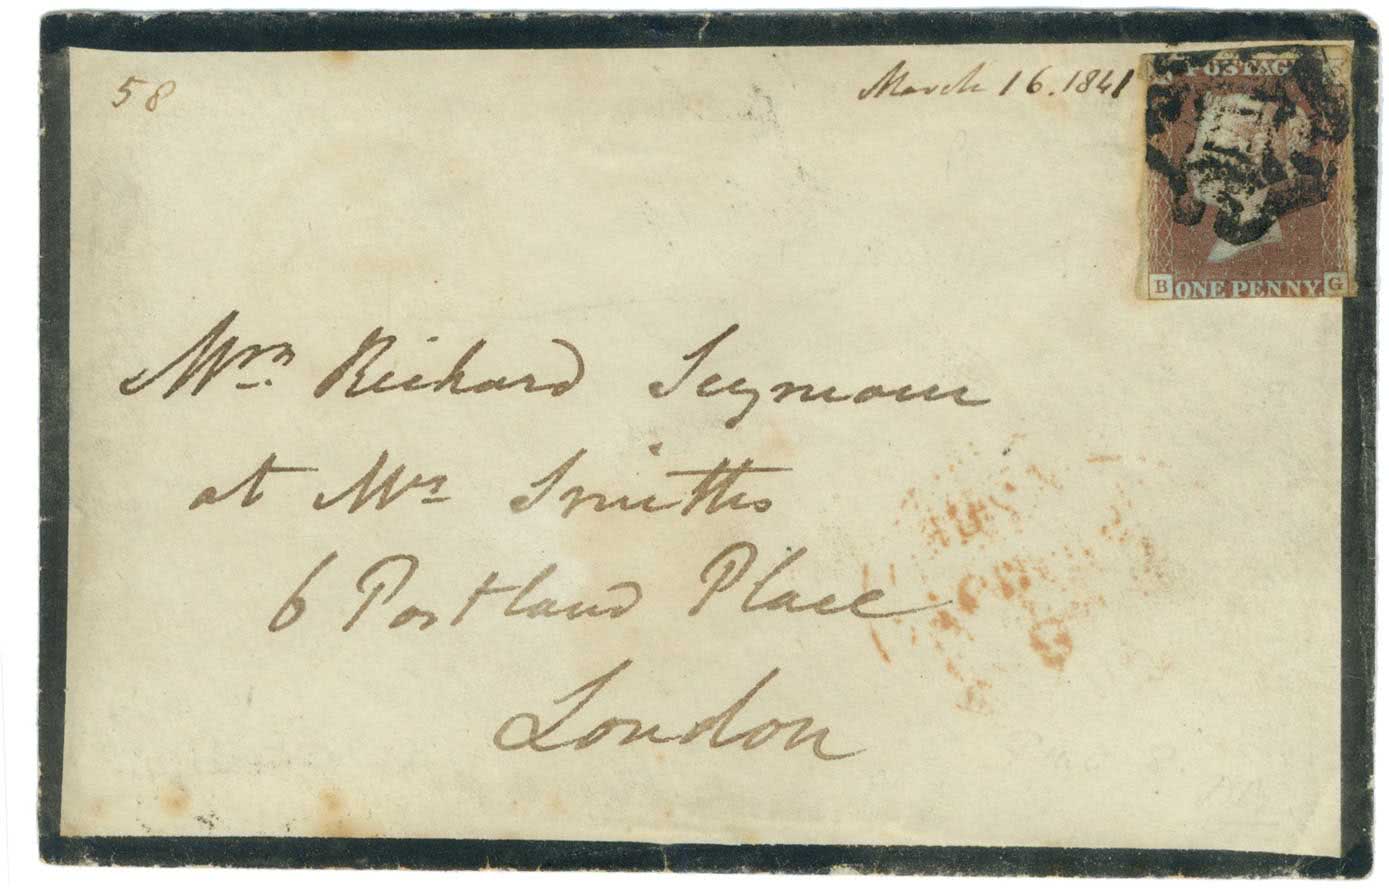 58
March 16. 1841
POSTAGE
B ONE PENNY. G
Mrs. Richard Seymour
at Mrs Smith's
6 Portland Place
London